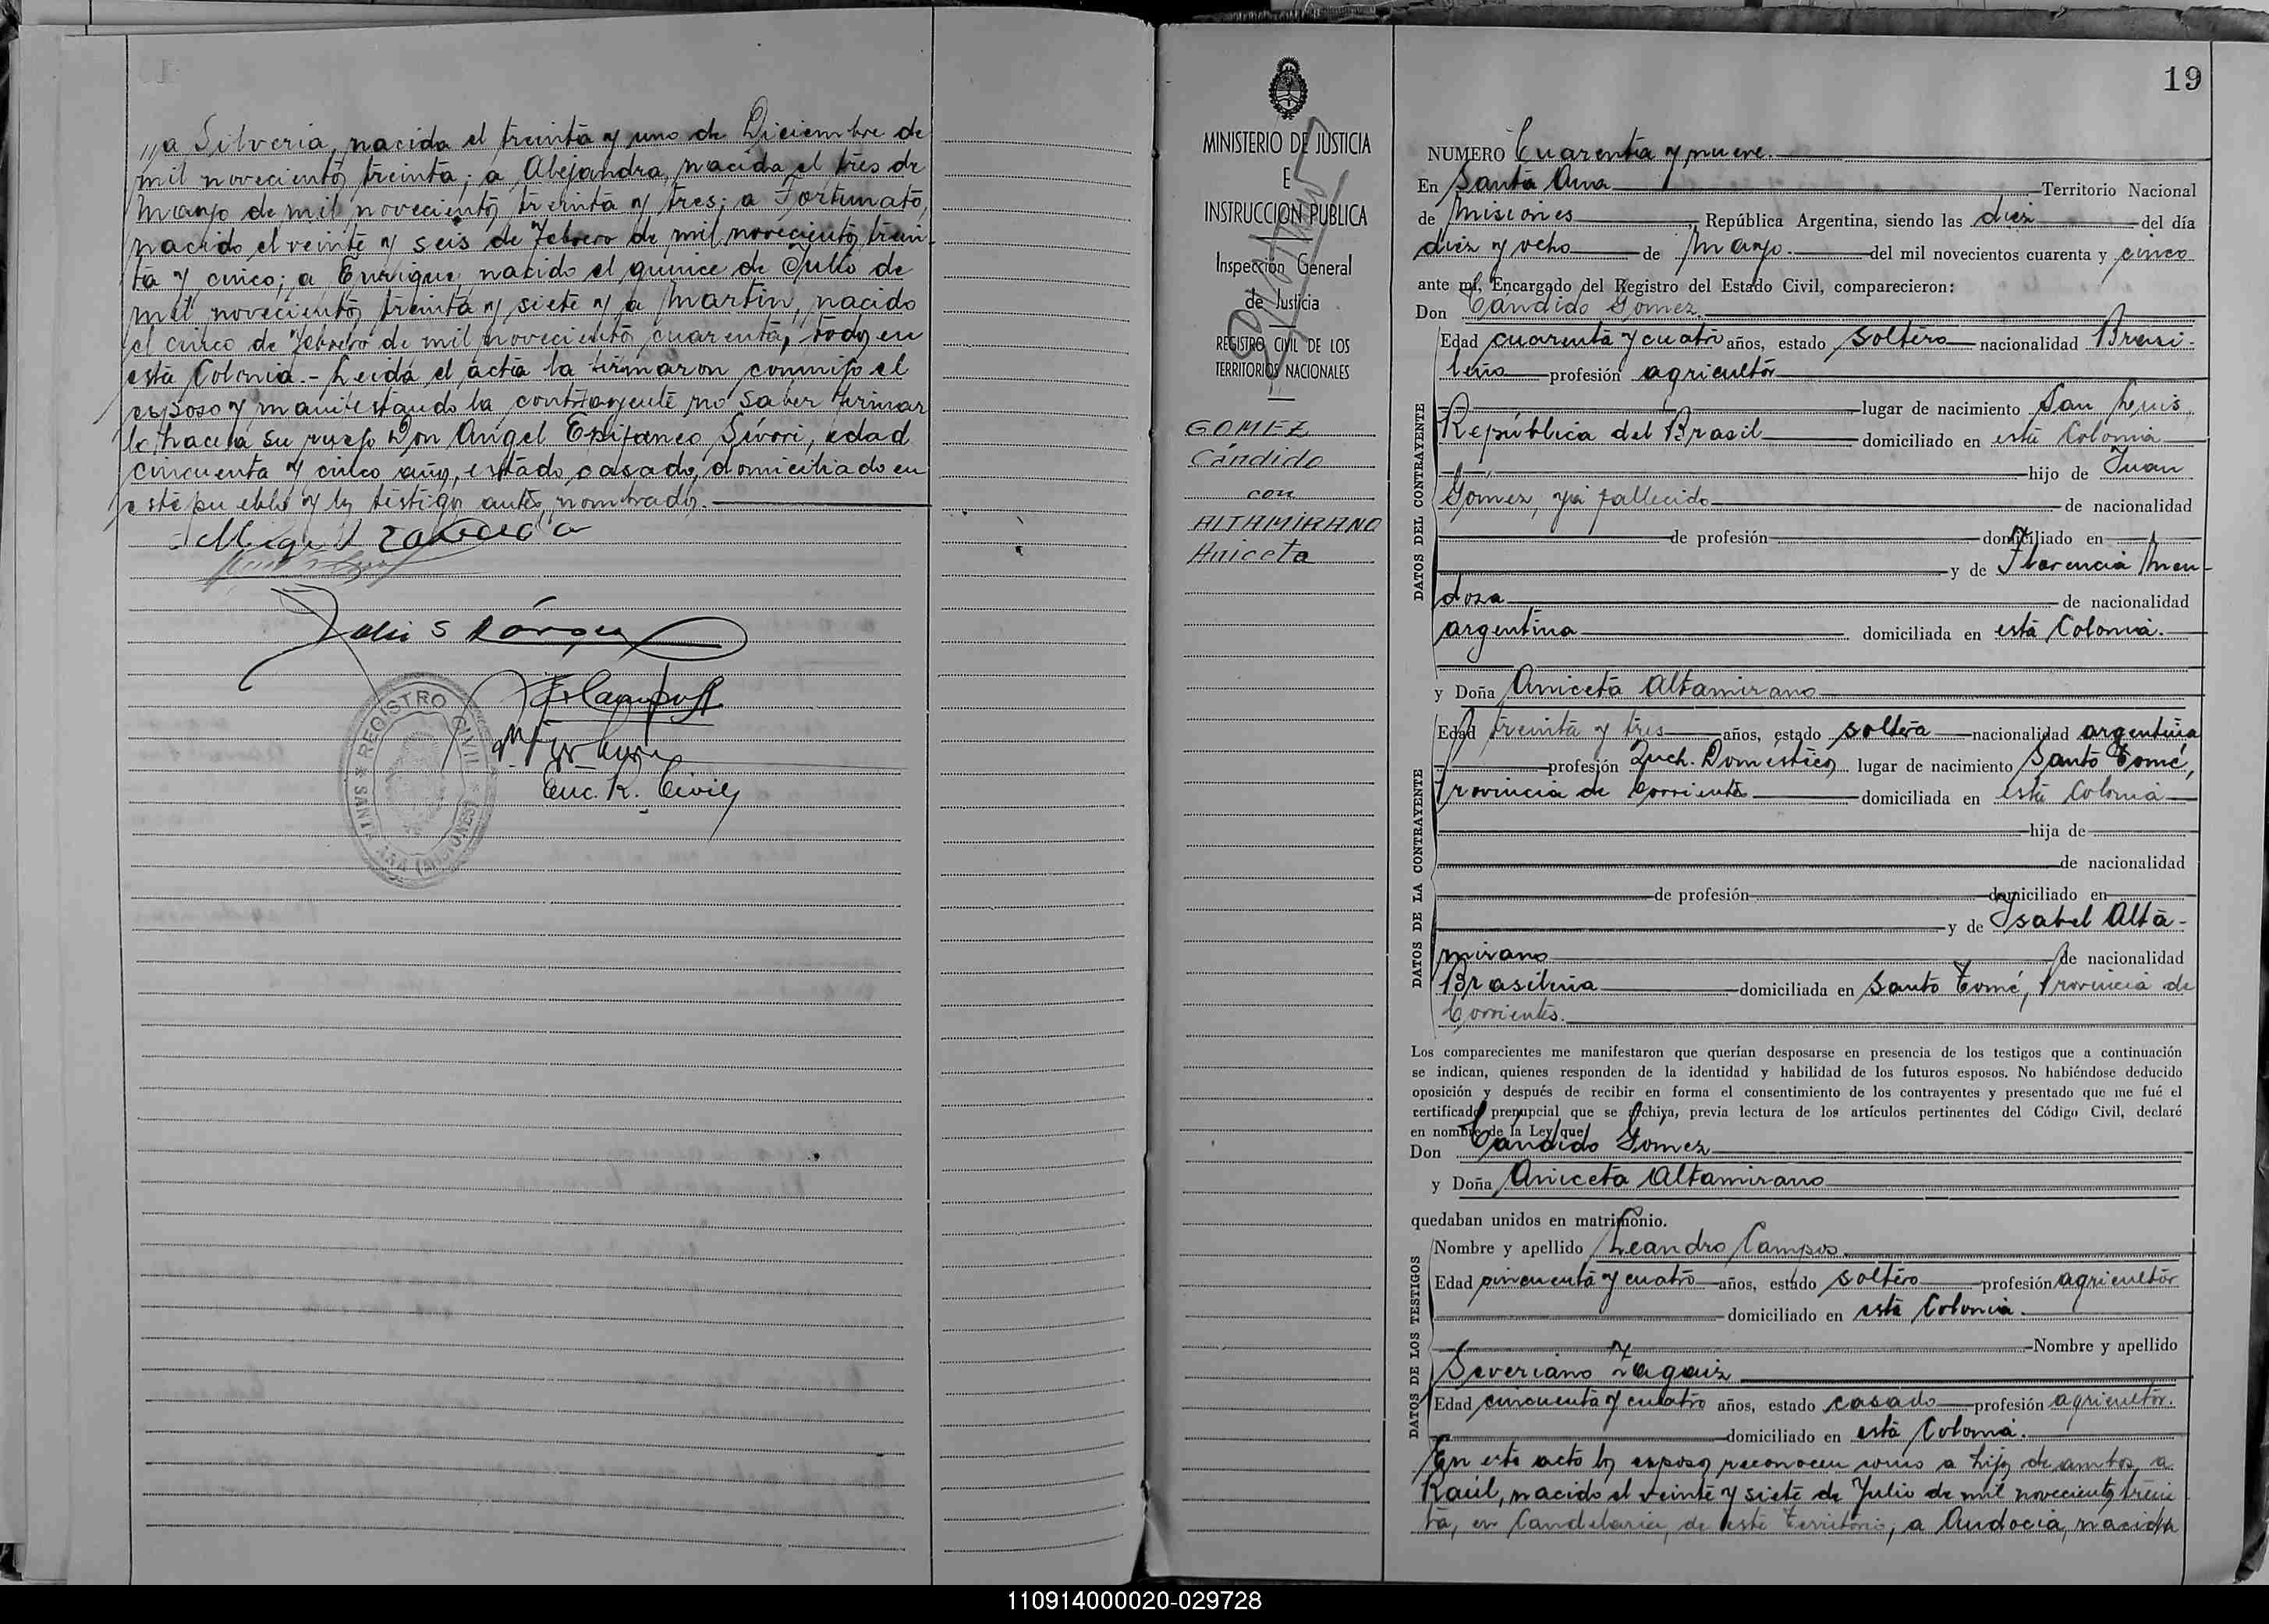 " a Silveria, nacida el treinta y uno de Diciembre de
mil novecientos treinta; a Alejandra, nacida el tres de
Mayo de mil novecientos treinta y tres; a Fortunato,
nacido el veinte y seis de Febrero de mil novecientos trein-
ta y cinco; a Enrique, nacido el quince de Julio de
mil novecientos treinta y siete y a Martin, nacido
el cinco de Febrero de mil novecientos cuarenta, todos en
esta Colonia.- Leida el acta la firmaron conmigo el
esposo y manifestando la contrayente no saber firmar
lo hace a su ruego Don Angel Epifaneo Sívori, edad
cincuenta y cinco años, estado casado, domiciliado en
este pueblo y los testigos antes nombrados.
Enc. R. Civil
REGISTRO CIVIL
SANTA ANA (MISIONES)
MINISTERIO DE JUSTICIA
E
INSTRUCCION PUBLICA
Inspección General
de Justicia
REGISTRO CIVIL DE LOS
TERRITORIOS NACIONALES
GOMEZ
Cándido
con
ALTAMIRANO
Aniceta
19
NUMERO Cuarenta y nueve.
En Santa Ana Territorio Nacional
de Misiones, República Argentina, siendo las diez del día
diez y ocho de Mayo. del mil novecientos cuarenta y cinco
ante mí, Encargado del Registro del Estado Civil, comparecieron:
Don Cándido Gomez
DATOS DEL CONTRAYENTE
Edad cuarenta y cuatro años, estado soltero nacionalidad Brasi-
leña profesión agricultor
lugar de nacimiento San Luis
República del Brasil domiciliado en esta Colonia
hijo de Juan
Gómez, ya fallecido de nacionalidad
de profesión domiciliado en
y de Florencia Men-
doza de nacionalidad
argentina domiciliada en esta Colonia.
y Doña Aniceta Altamirano
DATOS DE LA CONTRAYENTE
Edad treinta y tres años, estado soltera nacionalidad argentina
profesión Queh. Domésticos lugar de nacimiento Santo Tomé,
Provincia de Corrientes domiciliada en esta Colonia
hija de
de nacionalidad
de profesión domiciliado en
y de Isabel Alta-
mirano de nacionalidad
Brasileña domiciliada en Santo Tomé, Provincia de
Corrientes.
Los comparecientes me manifestaron que querían desposarse en presencia de los testigos que a continuación
se indican, quienes responden de la identidad y habilidad de los futuros esposos. No habiéndose deducido
oposición y después de recibir en forma el consentimiento de los contrayentes y presentado que me fué el
certificado prenupcial que se archiva, previa lectura de los artículos pertinentes del Código Civil, declaré
en nombre de la Ley que
Don Cándido Gomez
y Doña Aniceta Altamirano
quedaban unidos en matrimonio.
DATOS DE LOS TESTIGOS
Nombre y apellido Leandro Campos
Edad cincuenta y cuatro años, estado soltero profesión agricultor
domiciliado en esta Colonia.
Nombre y apellido
Severiano
Edad cincuenta y cuatro años, estado casado profesión agricultor.
domiciliado en esta Colonia.
En este acto los esposos reconocen como a hijos de ambos, a
Raúl, nacido el veinte y siete de Julio de mil novecientos trein
ta, en Candelaria, de este Territorio, a Audocia, nacida
110914000020-029728